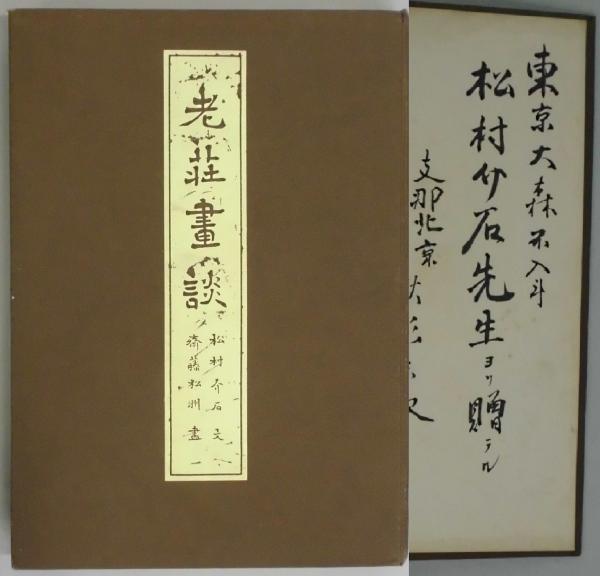 老莊畫談
松村介石 文
齋藤松洲 畫
東京大森不入斗
松村介石先生ヨリ贈ラル
支那北京